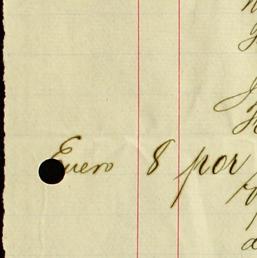 Enero 8 por